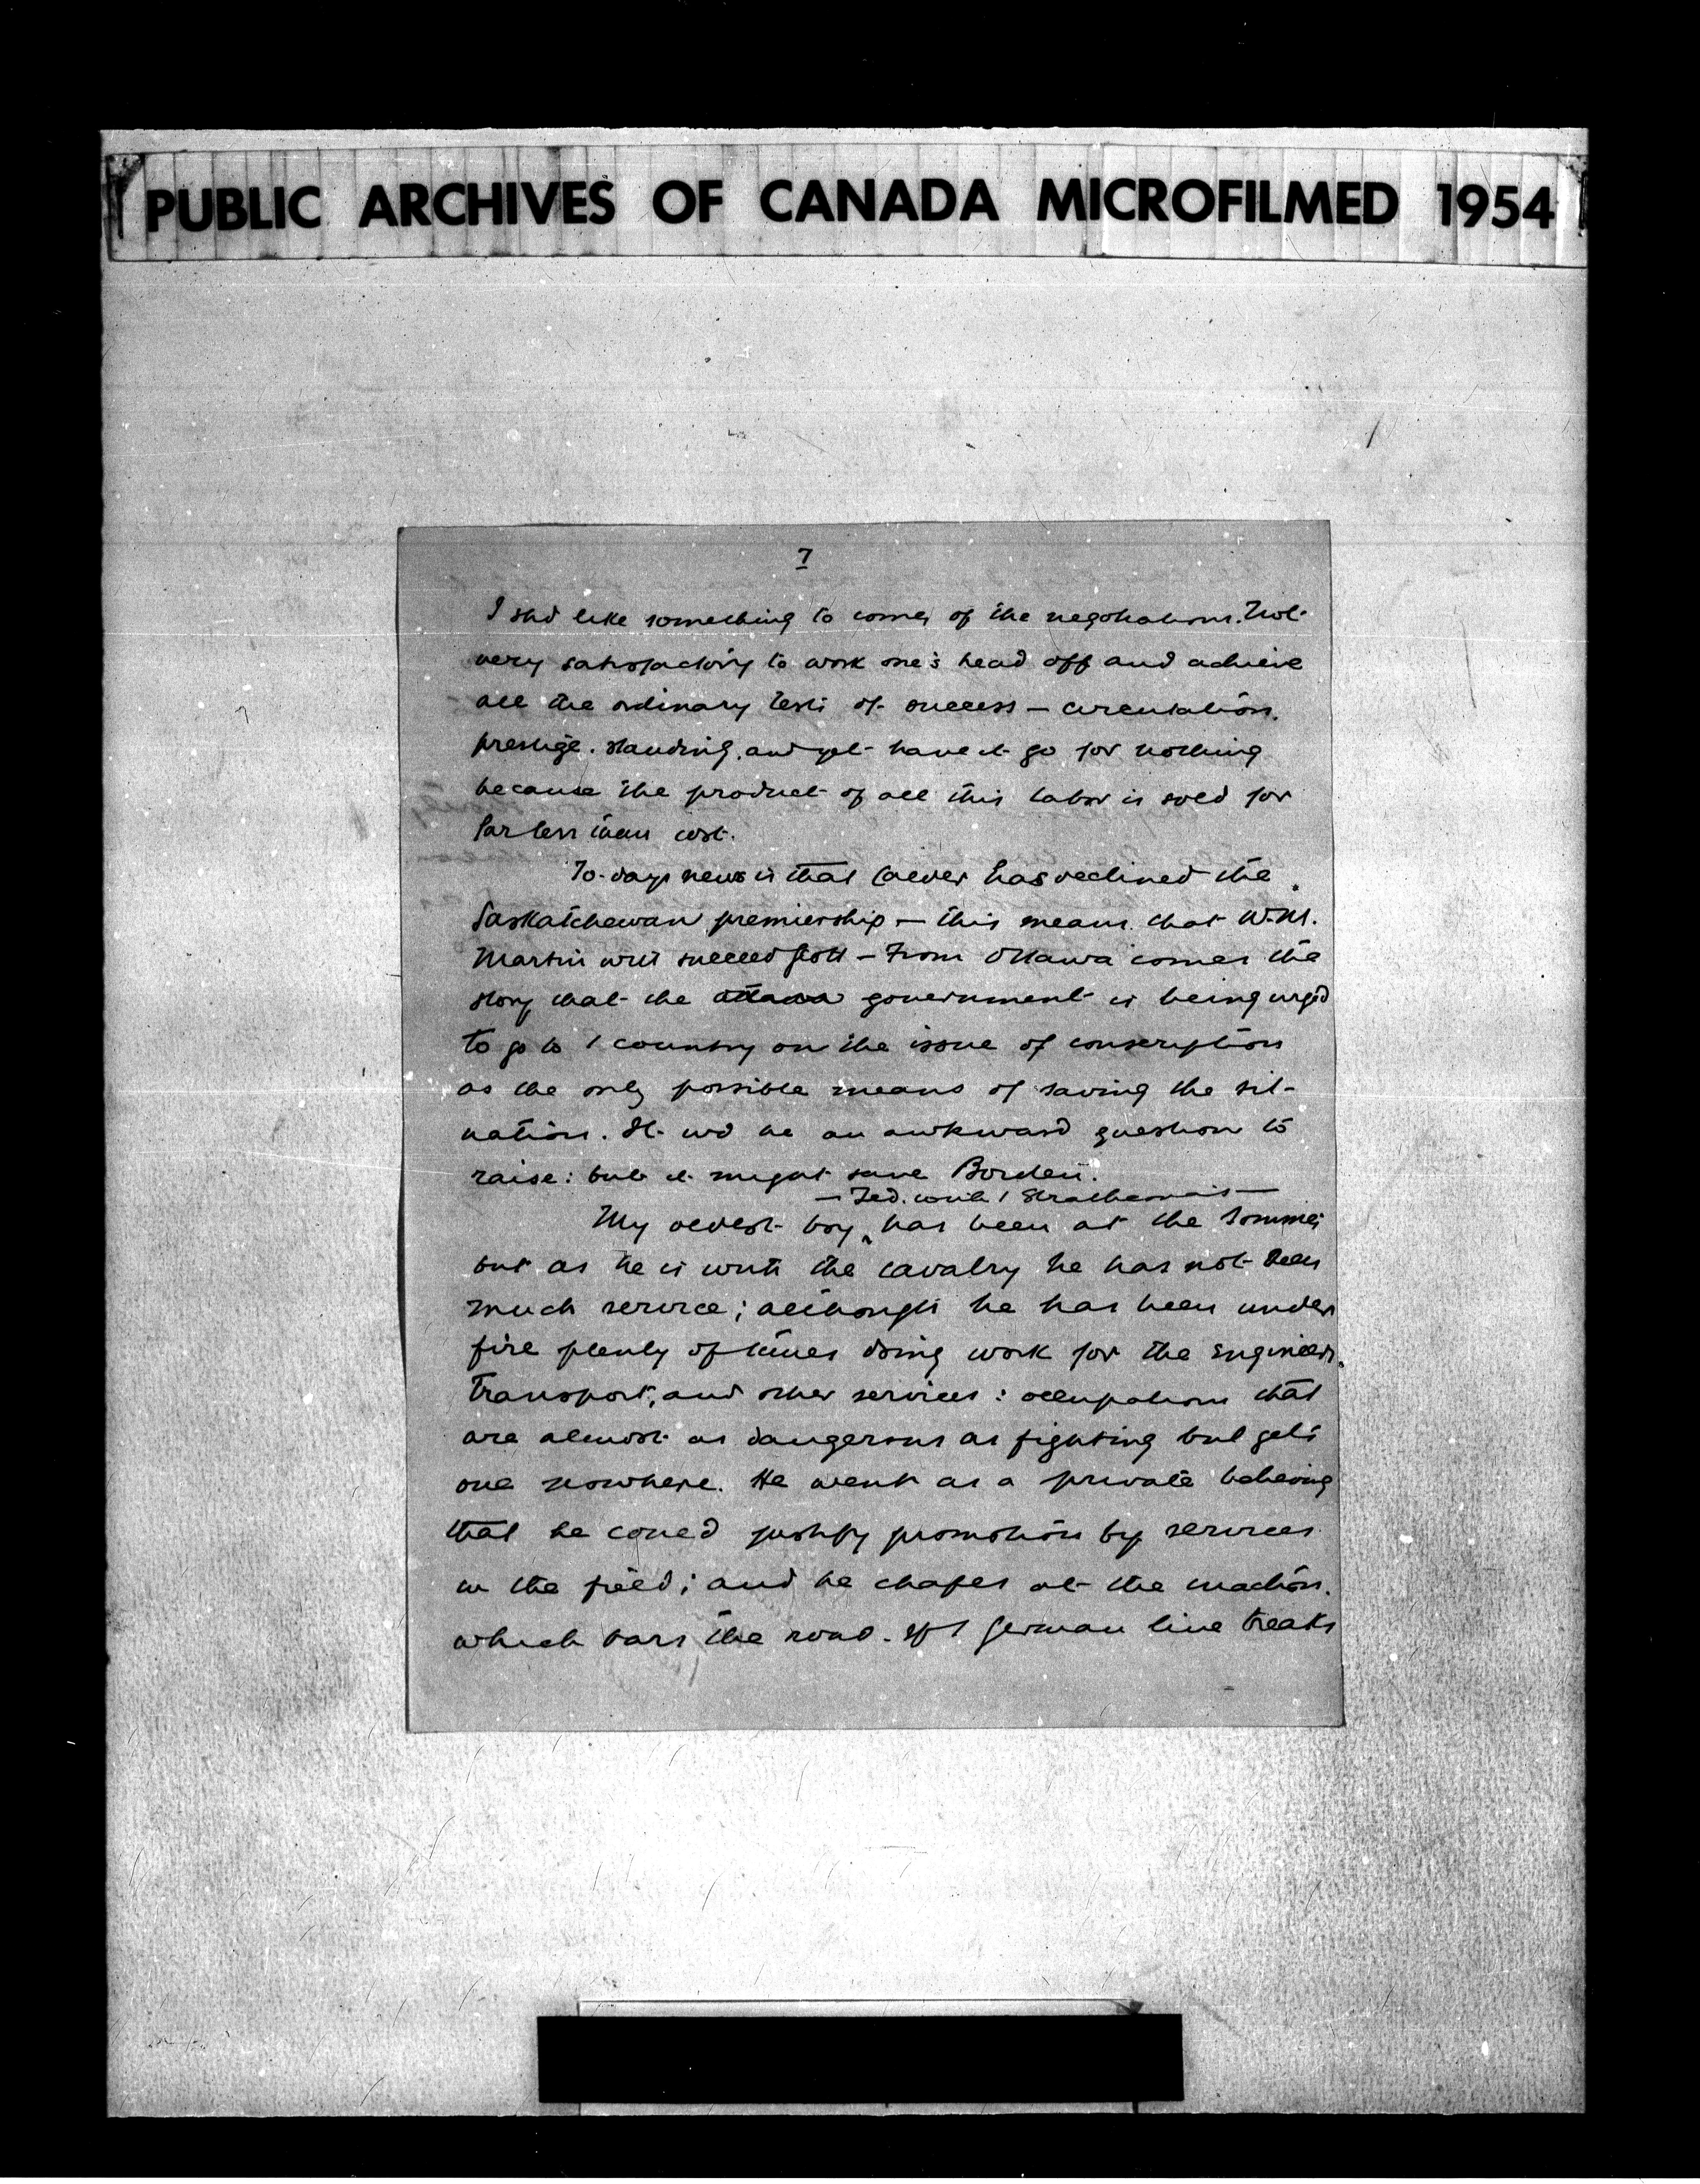 PUBLIC ARCHIVES OF CANADA MICROFILMED 1954
7
I shd like something to come of the negotiations. Not
very satisfactory to work one's head off and achieve
all the ordinary tests of success — circulation,
prestige, standing, and yet have it go for nothing
because the product of all this labor is sold for
far less than cost.
To-days news is that Calder has declined the
Saskatchewan premiership — this means that W.M.
Martin will succeed Scott — From Ottawa comes the
story that the Ottawa government is being urged
to go to / country on the issue of conscription
as the only possible means of saving the sit-
uation. It wd be an awkward question to
raise: but it might save Borden.
— Ted. with / Strathconas —
My oldest boy ^ has been at the Somme;
but as he is with the cavalry he has not seen
much service; although he has been under
fire plenty of times doing work for the engineers,
transport, and other services: occupations that
are almost as dangerous as fighting but gets
one nowhere. He went as a private believing
that he could justify promotion by services
in the field; and he chafes at the inaction.
which bars the road. If / German line breaks